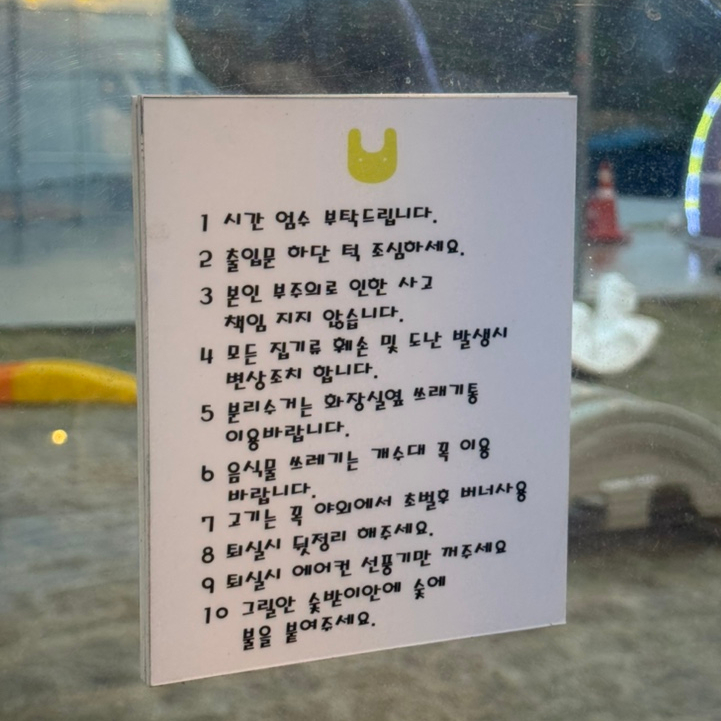 1 시간 엄수 부탁드립니다.
2 출입문 하단 턱 조심하세요.
3 본인 부주의로 인한 사고
책임 지지 않습니다.
4 모든 집기류 훼손 및 도난 발생시
변상조치 합니다.
5 분리수거는 화장실옆 쓰래기통
이용바랍니다.
6 음식물 쓰레기는 개수대 꼭 이용
바랍니다.
7 고기는 꼭 야외에서 초벌후 버너사용
8 퇴실시 뒷정리 해주세요.
9 퇴실시 에어컨 선풍기만 꺼주세요
10 그릴안 숯받이안에 숯에
불을 붙여주세요.